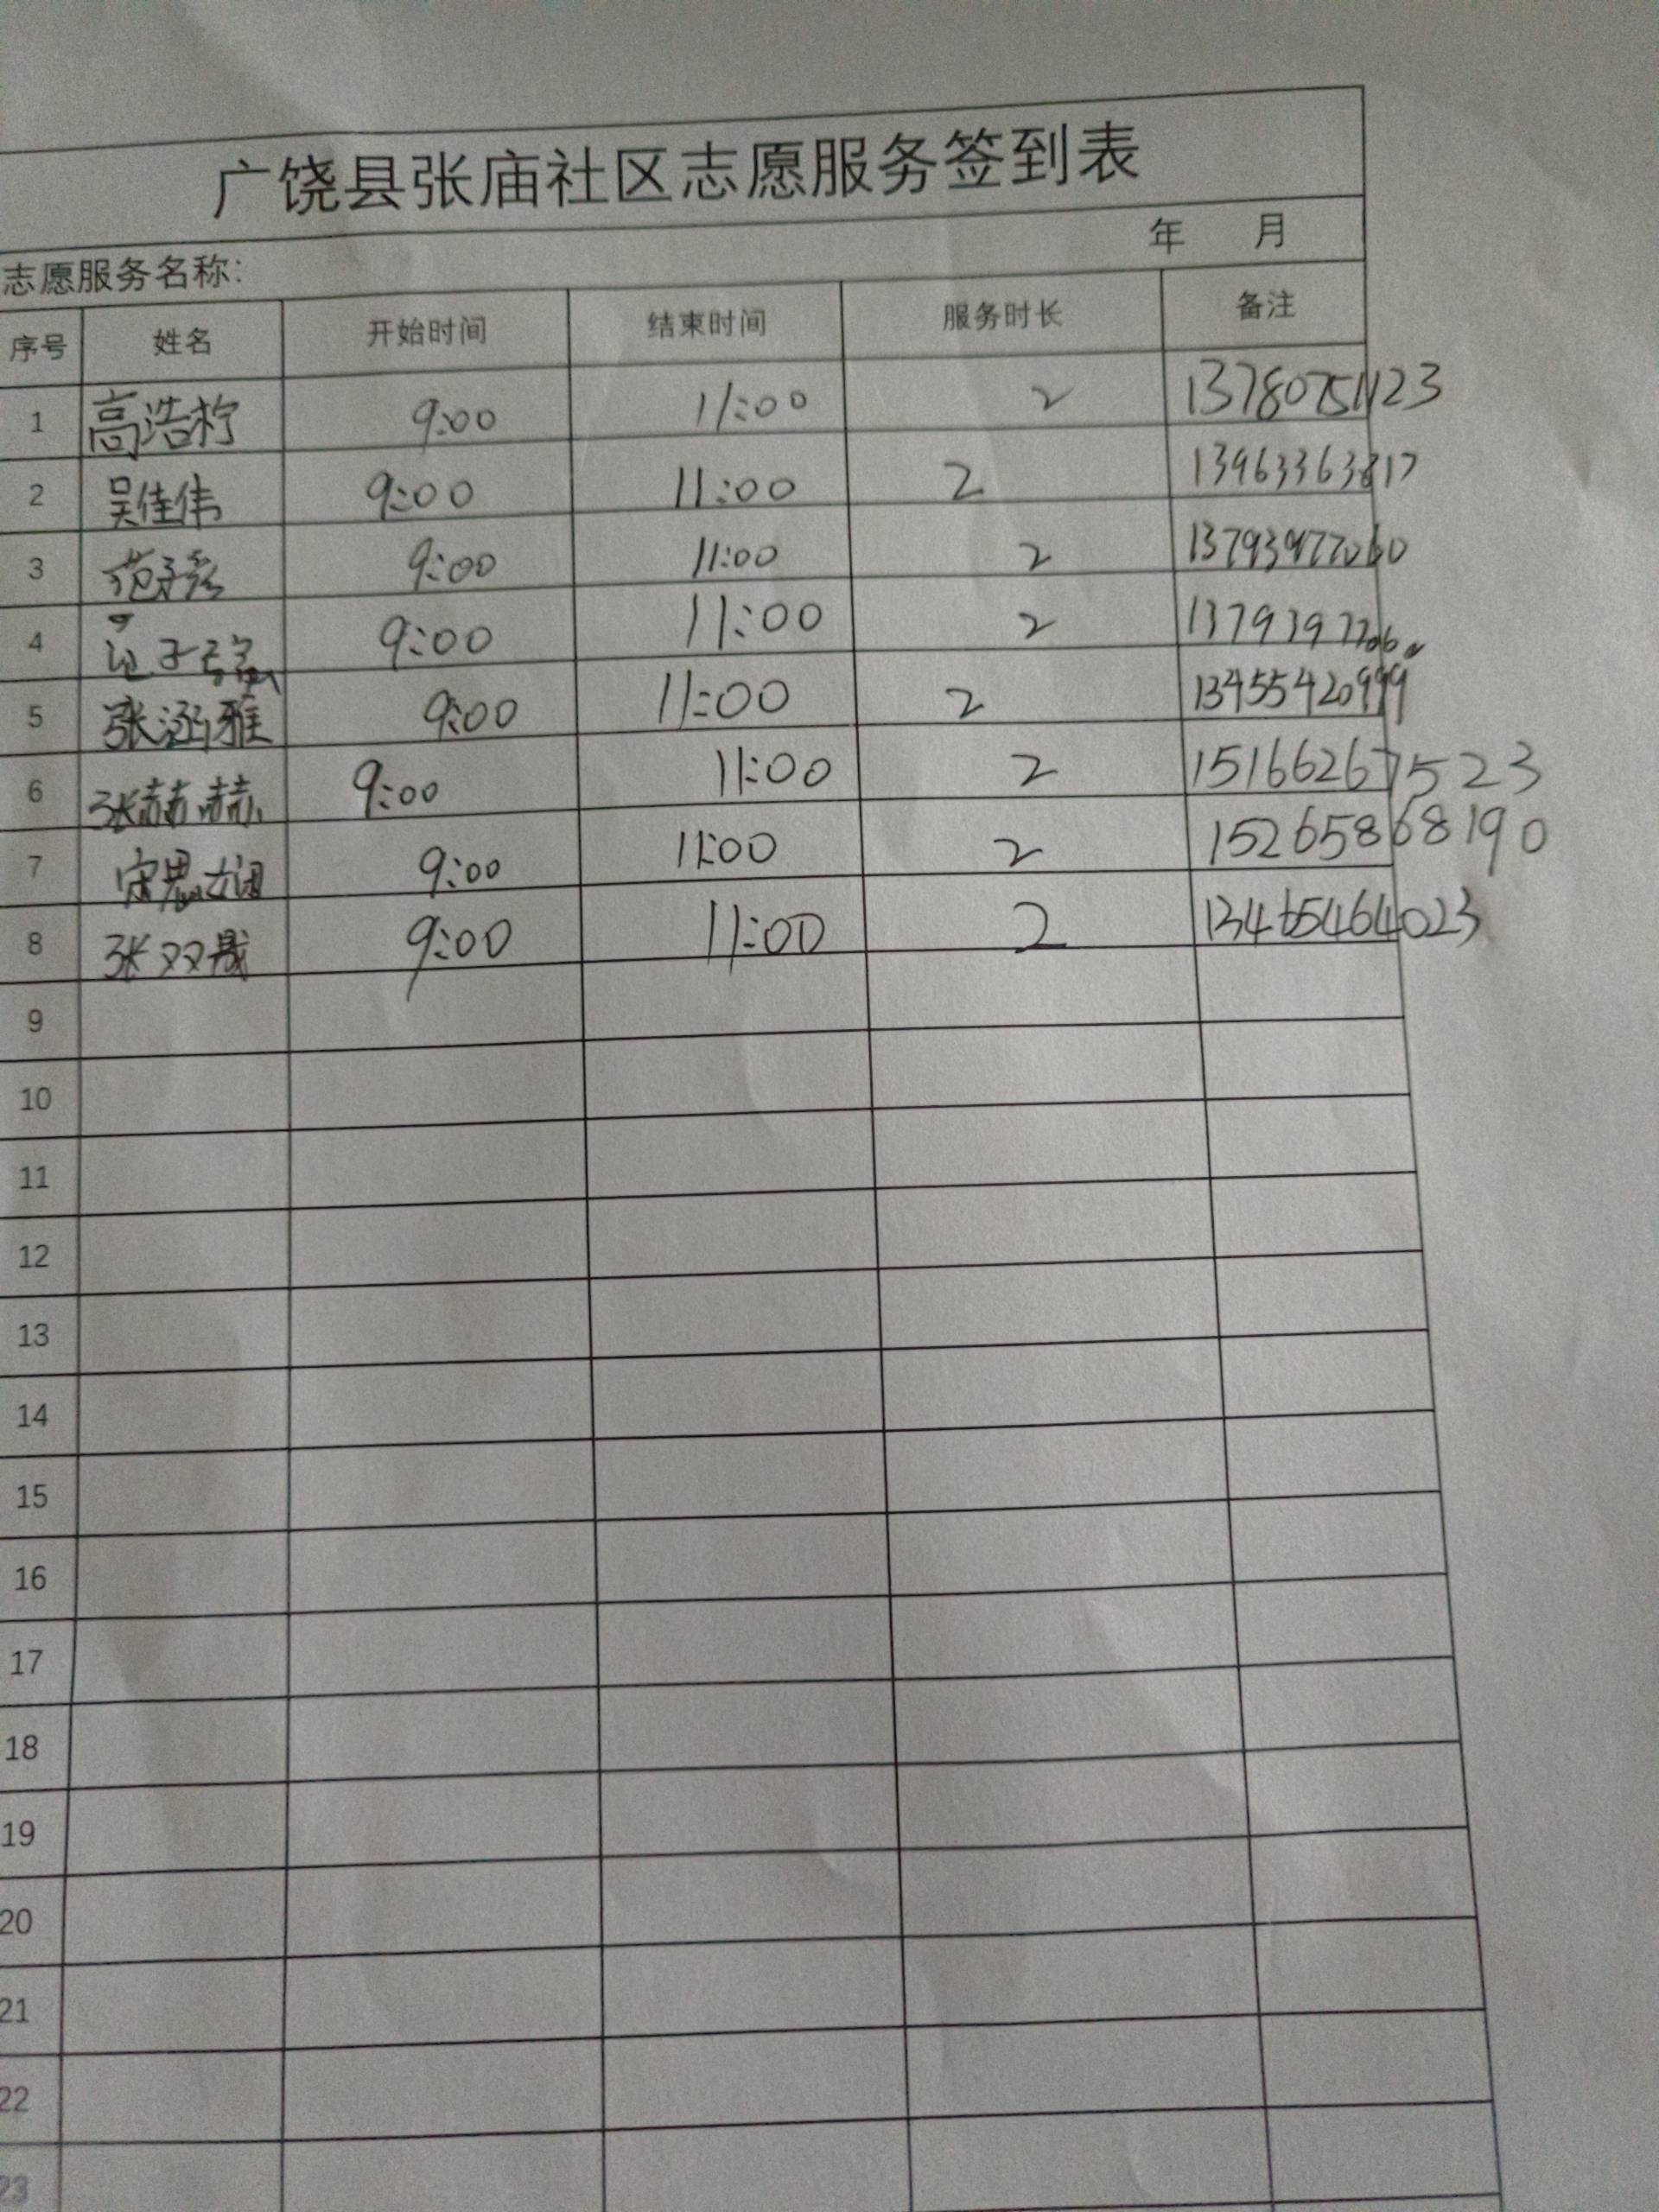 广饶县张庙社区志愿服务签到表
年 月
志愿服务名称：
序号 姓名 开始时间 结束时间 服务时长 备注
1 高浩柠 9:00 11:00 2 13780751123
2 吴佳伟 9:00 11:00 2 13963363817
3 9:00 11:00 2 13793977060
4 9:00 11:00 2
5 张涵雅 9:00 11:00 2 13455420999
6 张赫赫 9:00 11:00 2 15166267523
7 宋思娴 9:00 11:00 2 15265868190
8 张双晟 9:00 11:00 2 13465464023
9
10
11
12
13
14
15
16
17
18
19
20
21
22
23